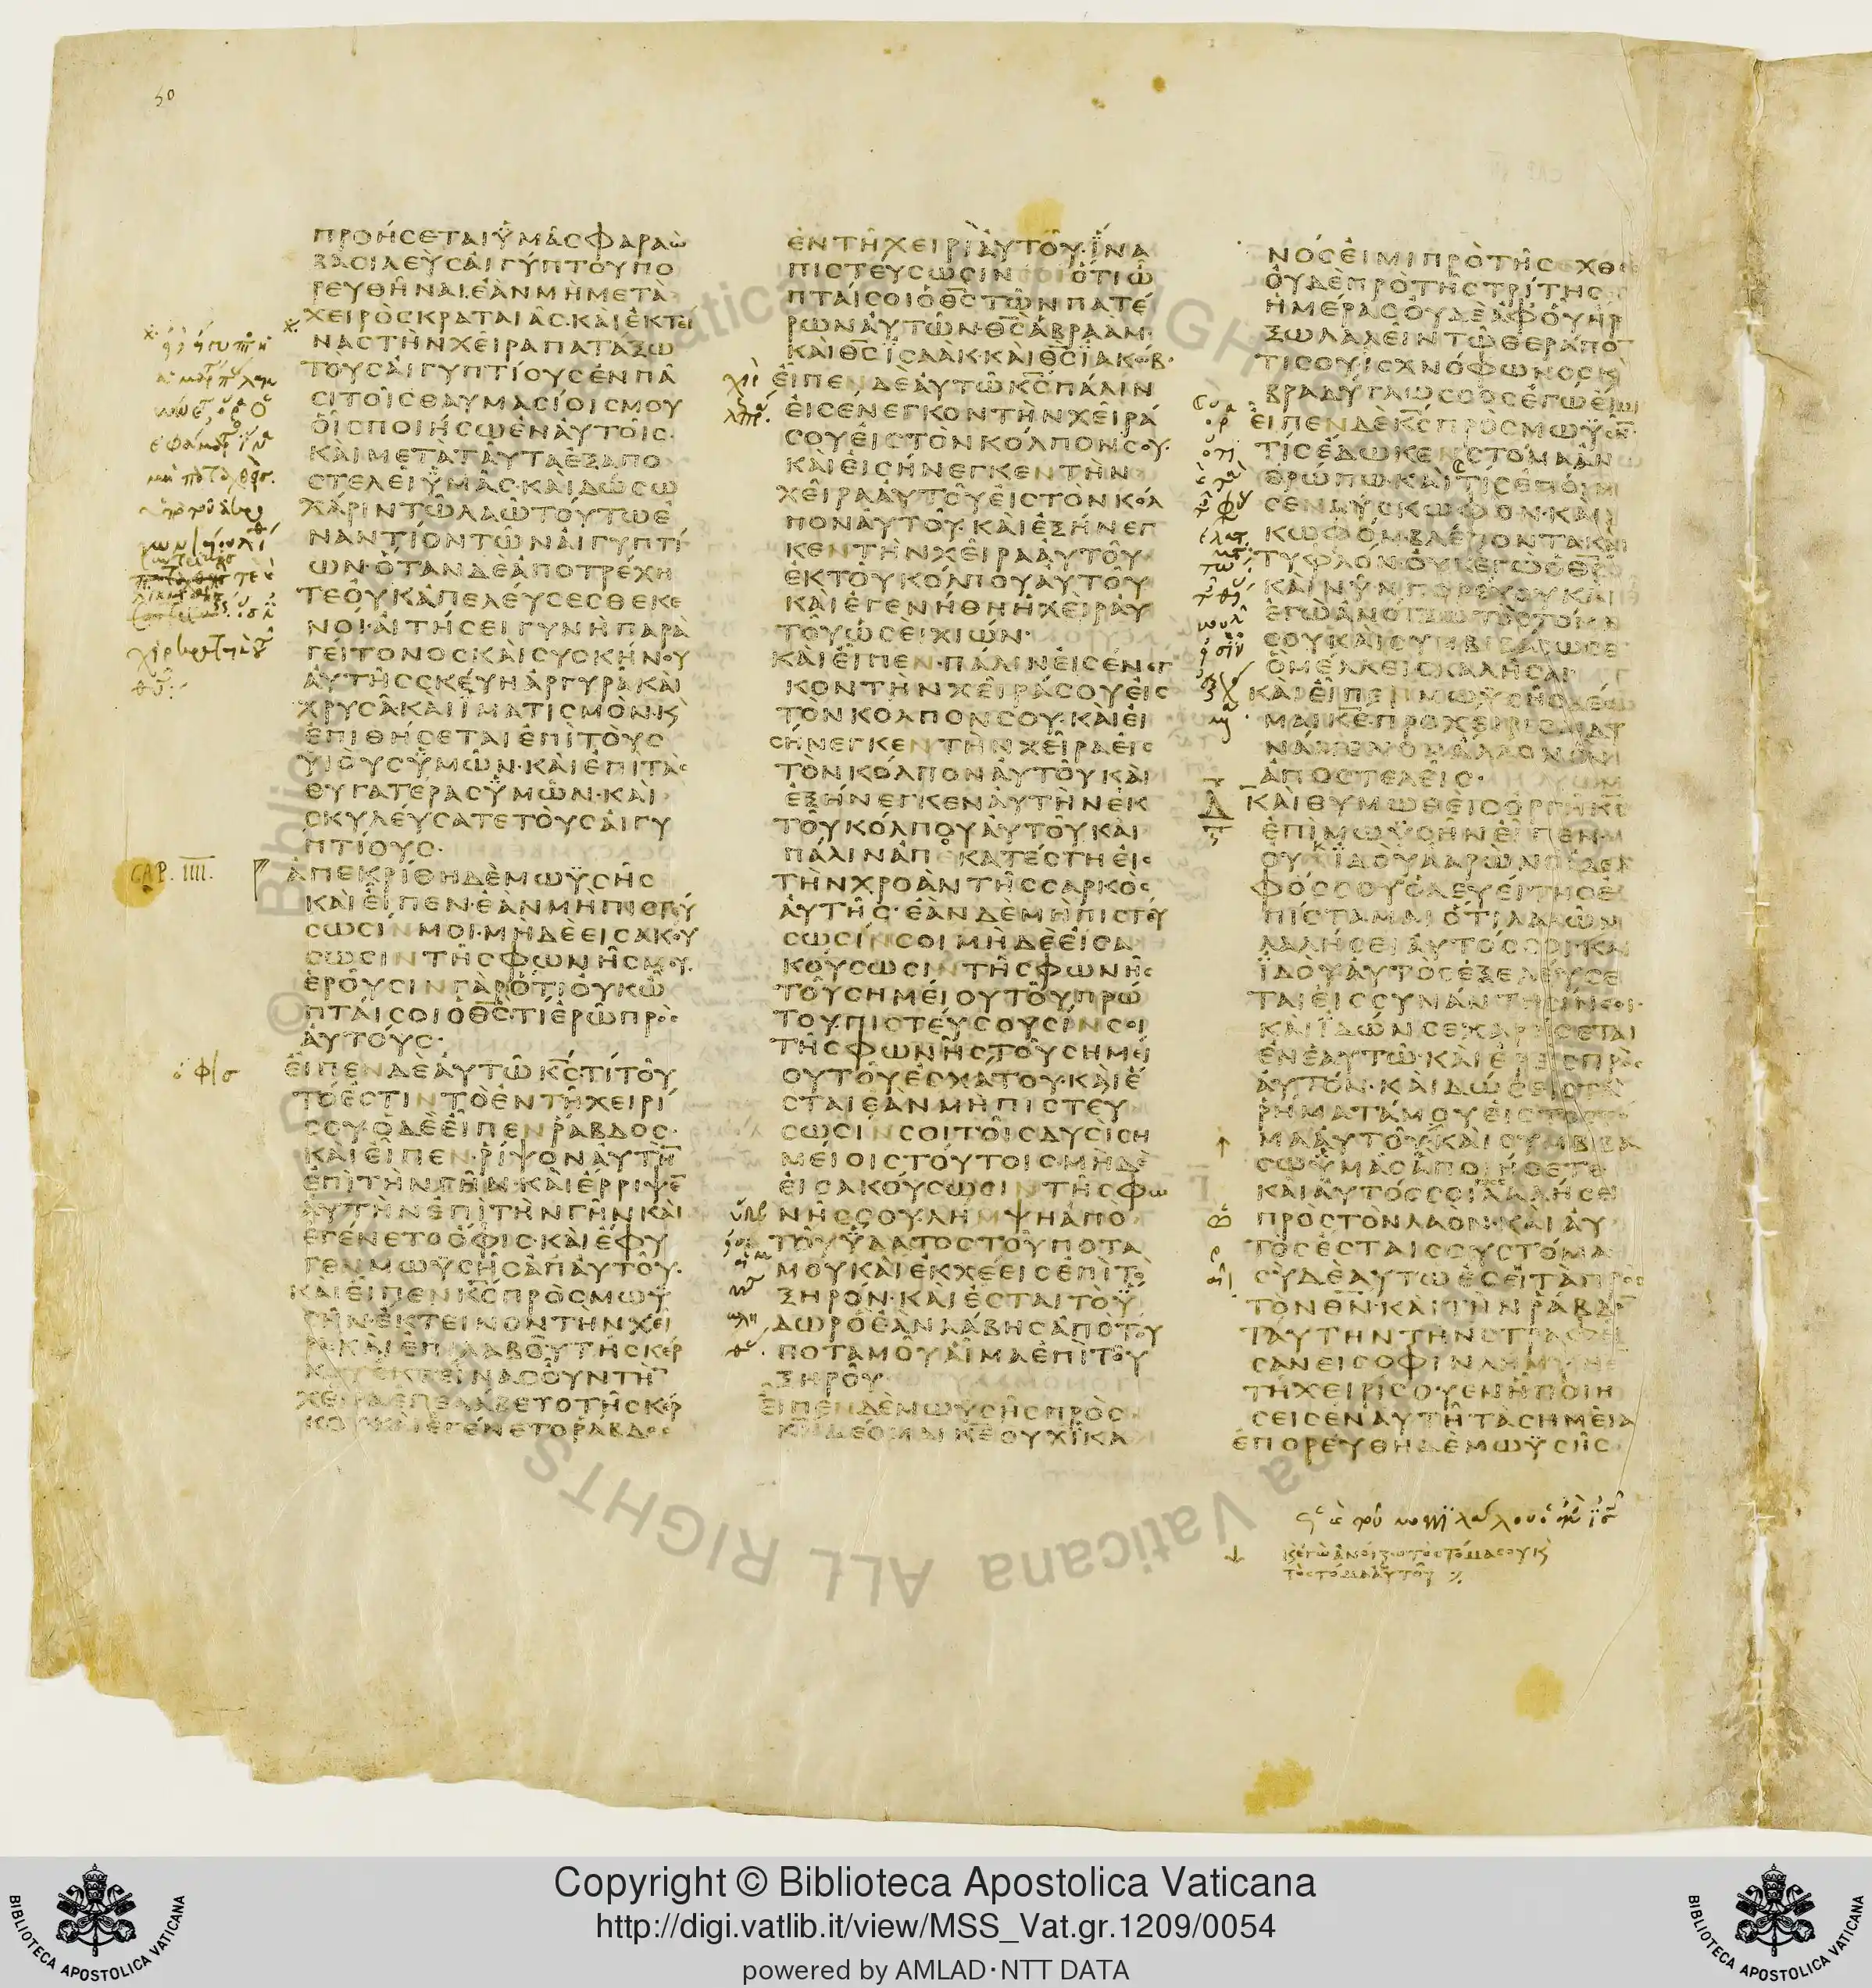 50
ΠΡΟΗΣΕΤΑΙ ΫΜΑΣ ΦΑΡΑΩ
ΒΑΣΙΛΕΥΣ ΑΙΓΥΠΤΟΥ ΠΟ
ΡΕΥΘΗΝΑΙ. ΕΑΝ ΜΗ ΜΕΤΑ
ΧΕΙΡΟΣ ΚΡΑΤΑΙΑΣ· ΚΑΙ ΕΚΤΕΙ
ΝΑΣ ΤΗΝ ΧΕΙΡΑ ΠΑΤΑΞΩ
ΤΟΥΣ ΑΙΓΥΠΤΙΟΥΣ ΕΝ ΠΑ
ΣΙ ΤΟΙΣ ΘΑΥΜΑΣΙΟΙΣ ΜΟΥ
ΟΙΣ ΠΟΙΗΣΩ ΕΝ ΑΥΤΟΙΣ·
ΚΑΙ ΜΕΤΑ ΤΑΥΤΑ ΕΞΑΠΟ
ΣΤΕΛΕΙ ΫΜΑΣ· ΚΑΙ ΔΩΣΩ
ΧΑΡΙΝ ΤΩ ΛΑΩ ΤΟΥΤΩ Ε
ΝΑΝΤΙΟΝ ΤΩΝ ΑΙΓΥΠΤΙ
ΩΝ· ΟΤΑΝ ΔΕ ΑΠΟΤΡΕΧΗ
ΤΕ ΟΥΚ ΑΠΕΛΕΥΣΕΣΘΕ ΚΕ
ΝΟΙ· ΑΙΤΗΣΕΙ ΓΥΝΗ ΠΑΡΑ
ΓΕΙΤΟΝΟΣ ΚΑΙ ΣΥΣΚΗΝΟΥ
ΑΥΤΗΣ ΣΚΕΥΗ ΑΡΓΥΡΑ ΚΑΙ
ΧΡΥΣΑ ΚΑΙ ΙΜΑΤΙΣΜΟΝ· Κ
ΕΠΙΘΗΣΕΤΑΙ ΕΠΙ ΤΟΥΣ
ΥΙΟΥΣ ΫΜΩΝ· ΚΑΙ ΕΠΙ ΤΑΣ
ΘΥΓΑΤΕΡΑΣ ΫΜΩΝ· ΚΑΙ
ΣΚΥΛΕΥΣΑΤΕ ΤΟΥΣ ΑΙΓΥ
ΠΤΙΟΥΣ·
CAP. IIII.
ΑΠΕΚΡΙΘΗ ΔΕ ΜΩΫΣΗΣ
ΚΑΙ ΕΙΠΕΝ· ΕΑΝ ΜΗ ΠΙΣΤΕΥ
ΣΩΣΙΝ ΜΟΙ· ΜΗΔΕ ΕΙΣΑΚΟΥ
ΣΩΣΙΝ ΤΗΣ ΦΩΝΗΣ ΜΟΥ.
ΕΡΟΥΣΙΝ ΓΑΡ ΟΤΙ ΟΥΚ Ω
ΠΤΑΙ ΣΟΙ Ο ΘΣ· ΤΙ ΕΡΩ ΠΡΟΣ
ΑΥΤΟΥΣ·
ΕΙΠΕΝ ΔΕ ΑΥΤΩ ΚΣ· ΤΙ ΤΟΥ
ΤΟ ΕΣΤΙΝ ΤΟ ΕΝ ΤΗ ΧΕΙΡΙ
ΣΟΥ· Ο ΔΕ ΕΙΠΕΝ ΡΑΒΔΟΣ·
ΚΑΙ ΕΙΠΕΝ· ΡΙΨΟΝ ΑΥΤΗ
ΕΠΙ ΤΗΝ ΓΗΝ· ΚΑΙ ΕΡΡΙΨΕ
ΑΥΤΗΝ ΕΠΙ ΤΗΝ ΓΗΝ ΚΑΙ
ΕΓΕΝΕΤΟ ΟΦΙΣ· ΚΑΙ ΕΦΥ
ΓΕΝ ΜΩΫΣΗΣ ΑΠ ΑΥΤΟΥ·
ΚΑΙ ΕΙΠΕΝ ΚΣ ΠΡΟΣ ΜΩΫ
ΣΗΝ· ΕΚΤΕΙΝΟΝ ΤΗΝ ΧΕΙ
ΡΑ· ΚΑΙ ΕΠΙΛΑΒΟΥ ΤΗΣ ΚΕΡ
ΚΟΥ· ΕΚΤΕΙΝΑΣ ΟΥΝ ΤΗ
ΧΕΙΡΑ ΕΠΕΛΑΒΕΤΟ ΤΗΣ ΚΕΡ
ΚΟΥ· ΚΑΙ ΕΓΕΝΕΤΟ ΡΑΒΔΟΣ
ΕΝ ΤΗ ΧΕΙΡΙ ΑΥΤΟΥ· ΪΝΑ
ΠΙΣΤΕΥΣΩΣΙΝ ΣΟΙ ΟΤΙ Ω
ΠΤΑΙ ΣΟΙ Ο ΘΣ ΤΩΝ ΠΑΤΕ
ΡΩΝ ΑΥΤΩΝ· ΘΣ ΑΒΡΑΑΜ·
ΚΑΙ ΘΣ ΪΣΑΑΚ· ΚΑΙ ΘΣ ΪΑΚΩΒ·
ΕΙΠΕΝ ΔΕ ΑΥΤΩ ΚΣ ΠΑΛΙΝ
ΕΙΣΕΝΕΓΚΟΝ ΤΗΝ ΧΕΙΡΑ
ΣΟΥ ΕΙΣ ΤΟΝ ΚΟΛΠΟΝ ΣΟΥ·
ΚΑΙ ΕΙΣΗΝΕΓΚΕΝ ΤΗΝ
ΧΕΙΡΑ ΑΥΤΟΥ ΕΙΣ ΤΟΝ ΚΟΛ
ΠΟΝ ΑΥΤΟΥ· ΚΑΙ ΕΞΗΝΕΓ
ΚΕΝ ΤΗΝ ΧΕΙΡΑ ΑΥΤΟΥ
ΕΚ ΤΟΥ ΚΟΛΠΟΥ ΑΥΤΟΥ
ΚΑΙ ΕΓΕΝΗΘΗ Η ΧΕΙΡ ΑΥ
ΤΟΥ ΩΣΕΙ ΧΙΩΝ·
ΚΑΙ ΕΙΠΕΝ· ΠΑΛΙΝ ΕΙΣΕΝΕΓ
ΚΟΝ ΤΗΝ ΧΕΙΡΑ ΣΟΥ ΕΙΣ
ΤΟΝ ΚΟΛΠΟΝ ΣΟΥ· ΚΑΙ ΕΙ
ΣΗΝΕΓΚΕΝ ΤΗΝ ΧΕΙΡΑ ΕΙΣ
ΤΟΝ ΚΟΛΠΟΝ ΑΥΤΟΥ ΚΑΙ
ΕΞΗΝΕΓΚΕΝ ΑΥΤΗΝ ΕΚ
ΤΟΥ ΚΟΛΠΟΥ ΑΥΤΟΥ ΚΑΙ
ΠΑΛΙΝ ΑΠΟΚΑΤΕΣΤΗ ΕΙΣ
ΤΗΝ ΧΡΟΑΝ ΤΗΣ ΣΑΡΚΟΣ
ΑΥΤΗΣ· ΕΑΝ ΔΕ ΜΗ ΠΙΣΤΕΥ
ΣΩΣΙΝ ΣΟΙ ΜΗΔΕ ΕΙΣΑ
ΚΟΥΣΩΣΙΝ ΤΗΣ ΦΩΝΗΣ
ΤΟΥ ΣΗΜΕΙΟΥ ΤΟΥ ΠΡΩ
ΤΟΥ· ΠΙΣΤΕΥΣΟΥΣΙΝ ΣΟΙ
ΤΗΣ ΦΩΝΗΣ ΤΟΥ ΣΗΜΕΙ
ΟΥ ΤΟΥ ΕΣΧΑΤΟΥ· ΚΑΙ Ε
ΣΤΑΙ ΕΑΝ ΜΗ ΠΙΣΤΕΥ
ΣΩΣΙΝ ΣΟΙ ΤΟΙΣ ΔΥΣΙ ΣΗ
ΜΕΙΟΙΣ ΤΟΥΤΟΙΣ· ΜΗΔΕ
ΕΙΣΑΚΟΥΣΩΣΙΝ ΤΗΣ ΦΩ
ΝΗΣ ΣΟΥ· ΛΗΜΨΗ ΑΠΟ
ΤΟΥ ΫΔΑΤΟΣ ΤΟΥ ΠΟΤΑ
ΜΟΥ ΚΑΙ ΕΚΧΕΕΙΣ ΕΠΙ ΤΟ
ΞΗΡΟΝ· ΚΑΙ ΕΣΤΑΙ ΤΟ Ϋ
ΔΩΡ Ο ΕΑΝ ΛΑΒΗΣ ΑΠΟ ΤΟΥ
ΠΟΤΑΜΟΥ ΑΙΜΑ ΕΠΙ ΤΟΥ
ΞΗΡΟΥ·
ΕΙΠΕΝ ΔΕ ΜΩΫΣΗΣ ΠΡΟΣ
ΚΝ ΔΕΟΜΑΙ ΚΕ ΟΥΧ ΪΚΑ
ΝΟΣ ΕΙΜΙ ΠΡΟ ΤΗΣ ΧΘΕΣ
ΟΥΔΕ ΠΡΟ ΤΗΣ ΤΡΙΤΗΣ
ΗΜΕΡΑΣ ΟΥΔΕ ΑΦ ΟΥ ΗΡ
ΞΩ ΛΑΛΕΙΝ ΤΩ ΘΕΡΑΠΟ
ΤΙ ΣΟΥ ΙΣΧΝΟΦΩΝΟΣ Κ
ΒΡΑΔΥΓΛΩΣΣΟΣ ΕΓΩ ΕΙΜΙ
ΕΙΠΕΝ ΔΕ ΚΣ ΠΡΟΣ ΜΩΫΣΗ
ΤΙΣ ΕΔΩΚΕΝ ΣΤΟΜΑ ΑΝ
ΘΡΩΠΩ· ΚΑΙ ΤΙΣ ΕΠΟΙΗ
ΣΕΝ ΔΥΣΚΩΦΟΝ· ΚΑΙ
ΚΩΦΟΝ· ΒΛΕΠΟΝΤΑ ΚΑΙ
ΤΥΦΛΟΝ· ΟΥΚ ΕΓΩ Ο ΘΣ
ΚΑΙ ΝΥΝ ΠΟΡΕΥΟΥ ΚΑΙ
ΕΓΩ ΑΝΟΙΞΩ ΤΟ ΣΤΟΜΑ
ΣΟΥ ΚΑΙ ΣΥΜΒΙΒΑΣΩ ΣΕ
Ο ΜΕΛΛΕΙΣ ΛΑΛΗΣΑΙ·
ΚΑΙ ΕΙΠΕΝ ΜΩΫΣΗΣ ΔΕΟ
ΜΑΙ ΚΕ· ΠΡΟΧΕΙΡΙΣΑΙ
ΑΠΟΣΤΕΛΕΙΣ·
ΚΑΙ ΘΥΜΩΘΕΙΣ ΟΡΓΗ ΚΣ
ΕΠΙ ΜΩΫΣΗΝ ΕΙΠΕΝ
ΟΥΚ ΪΔΟΥ ΑΑΡΩΝ Ο ΑΔΕΛ
ΦΟΣ ΣΟΥ Ο ΛΕΥΕΙΤΗΣ Ε
ΠΙΣΤΑΜΑΙ ΟΤΙ ΛΑΛΩΝ
ΛΑΛΗΣΕΙ ΑΥΤΟΣ ΣΟΙ· ΚΑΙ
ΪΔΟΥ ΑΥΤΟΣ ΕΞΕΛΕΥΣΕ
ΤΑΙ ΕΙΣ ΣΥΝΑΝΤΗΣΙΝ ΣΟΙ·
ΚΑΙ ΪΔΩΝ ΣΕ ΧΑΡΗΣΕΤΑΙ
ΕΝ ΕΑΥΤΩ· ΚΑΙ ΕΡΕΙΣ ΠΡΟΣ
ΑΥΤΟΝ· ΚΑΙ ΔΩΣΕΙΣ ΤΑ
ΡΗΜΑΤΑ ΜΟΥ ΕΙΣ ΤΟ ΣΤΟ
ΜΑ ΑΥΤΟΥ· ΚΑΙ ΣΥΜΒΙΒΑ
ΣΩ ΫΜΑΣ Α ΠΟΙΗΣΕΤΕ
ΚΑΙ ΑΥΤΟΣ ΣΟΙ ΛΑΛΗΣΕΙ
ΠΡΟΣ ΤΟΝ ΛΑΟΝ· ΚΑΙ ΑΥ
ΤΟΣ ΕΣΤΑΙ ΣΟΥ ΣΤΟΜΑ
ΣΥ ΔΕ ΑΥΤΩ ΕΣΕΙ ΤΑ ΠΡΟΣ
ΤΟΝ ΘΝ· ΚΑΙ ΤΗΝ ΡΑΒΔΟ
ΤΑΥΤΗΝ ΤΗΝ ΣΤΡΑΦΕΙ
ΣΑΝ ΕΙΣ ΟΦΙΝ ΛΗΜΨΗ Ε
ΤΗ ΧΕΙΡΙ ΣΟΥ ΕΝ Η ΠΟΙΗ
ΣΕΙΣ ΕΝ ΑΥΤΗ ΤΑ ΣΗΜΕΙΑ
ΕΠΟΡΕΥΘΗ ΔΕ ΜΩΫΣΗΣ
Copyright © Biblioteca Apostolica Vaticana
http://digi.vatlib.it/view/MSS_Vat.gr.1209/0054
powered by AMLAD·NTT DATA
BIBLIOTECA APOSTOLICA VATICANA
BIBLIOTECA APOSTOLICA VATICANA